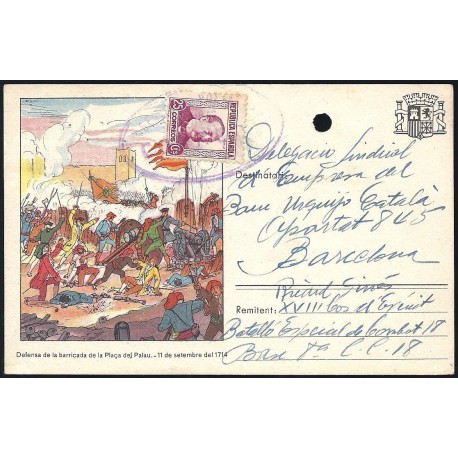 25 Cts
CORREOS
REPUBLICA ESPAÑOLA
Delegació Sindical
Destinatari:
d'Empresa del
Banc Urquijo Català
Apartat 845
Barcelona
Ricard Ginés
Remitent: XVIII Cos d'Exèrcit
Batalló Especial de Combat 18
Base 7ª C.C. 18
Defensa de la barricada de la Plaça del Palau. - 11 de setembre del 1714